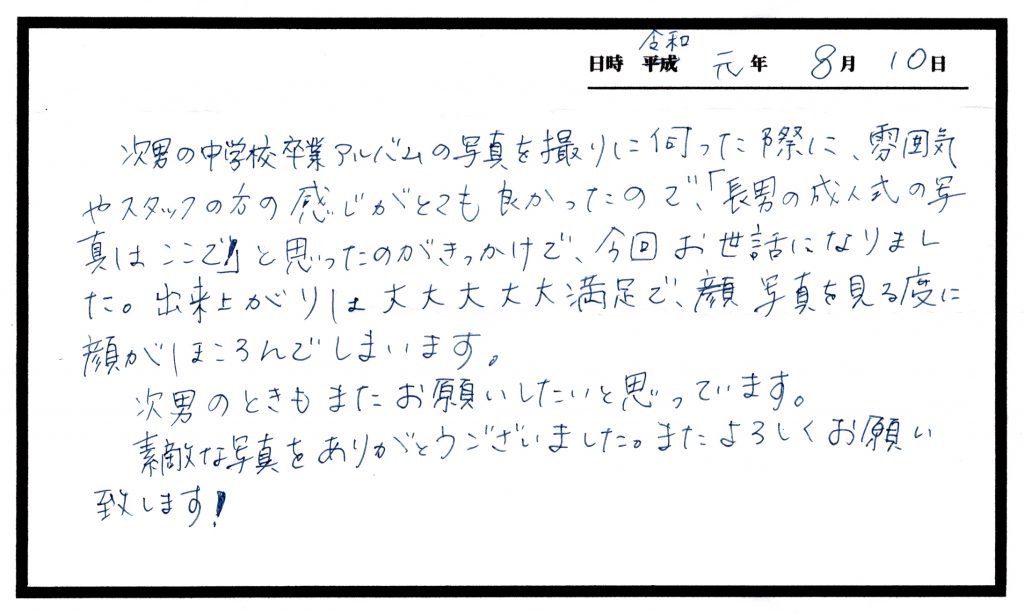 令和
日時 平成 元年 8月 10日
次男の中学校卒業アルバムの写真を撮りに伺った際に、雰囲気
やスタッフの方の感じがとても良かったので、「長男の成人式の写
真はここで!」と思ったのがきっかけで、今回お世話になりまし
た。出来上がりは大大大大大満足で、顔写真を見る度に
顔がほころんでしまいます。
次男のときもまたお願いしたいと思っています。
素敵な写真をありがとうございました。またよろしくお願い
致します!